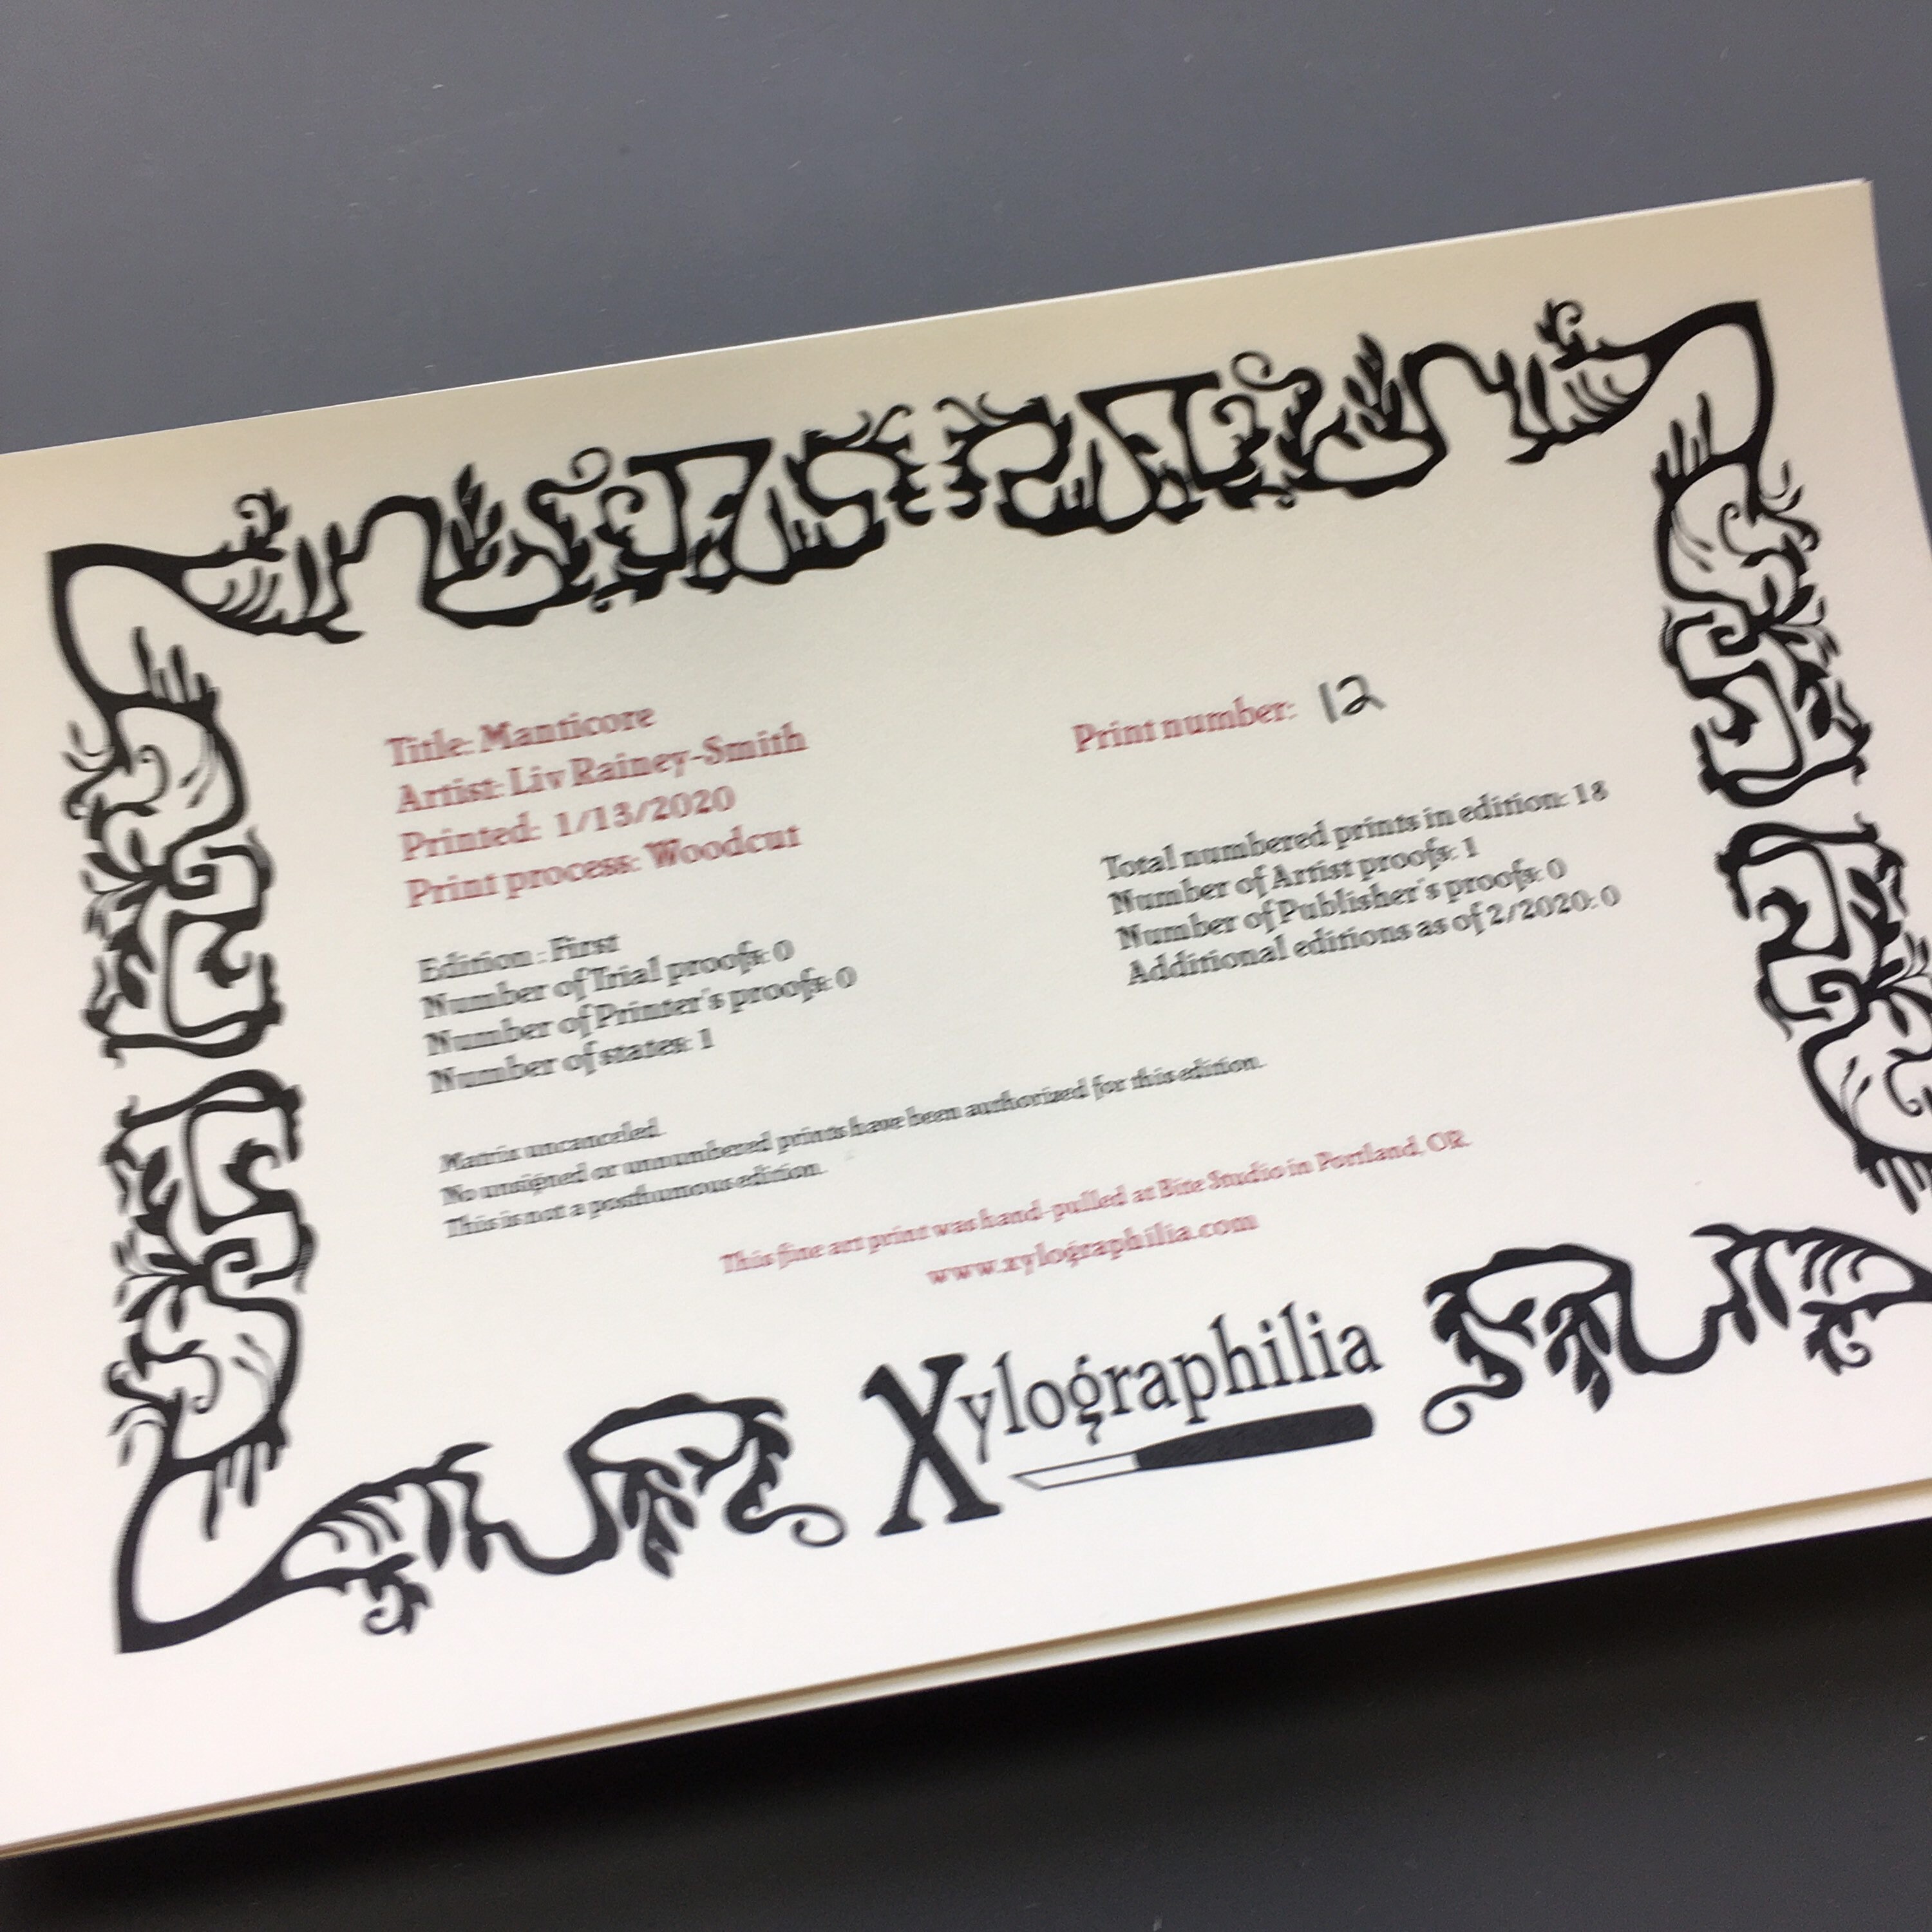 Title: Manticore
Artist: Liv Rainey-Smith
Printed: 1/13/2020
Print process: Woodcut
Print number: 12
Edition : First
Number of Trial proofs: 0
Number of Printer's proofs: 0
Number of states: 1
Total numbered prints in edition: 18
Number of Artist proofs: 1
Number of Publisher's proofs: 0
Additional editions as of 2/2020: 0
Matrix uncanceled.
No unsigned or unnumbered prints have been authorized for this edition.
This is not a posthumous edition.
This fine art print was hand-pulled at Bite Studio in Portland, OR.
www.xylographilia.com
Xylographilia